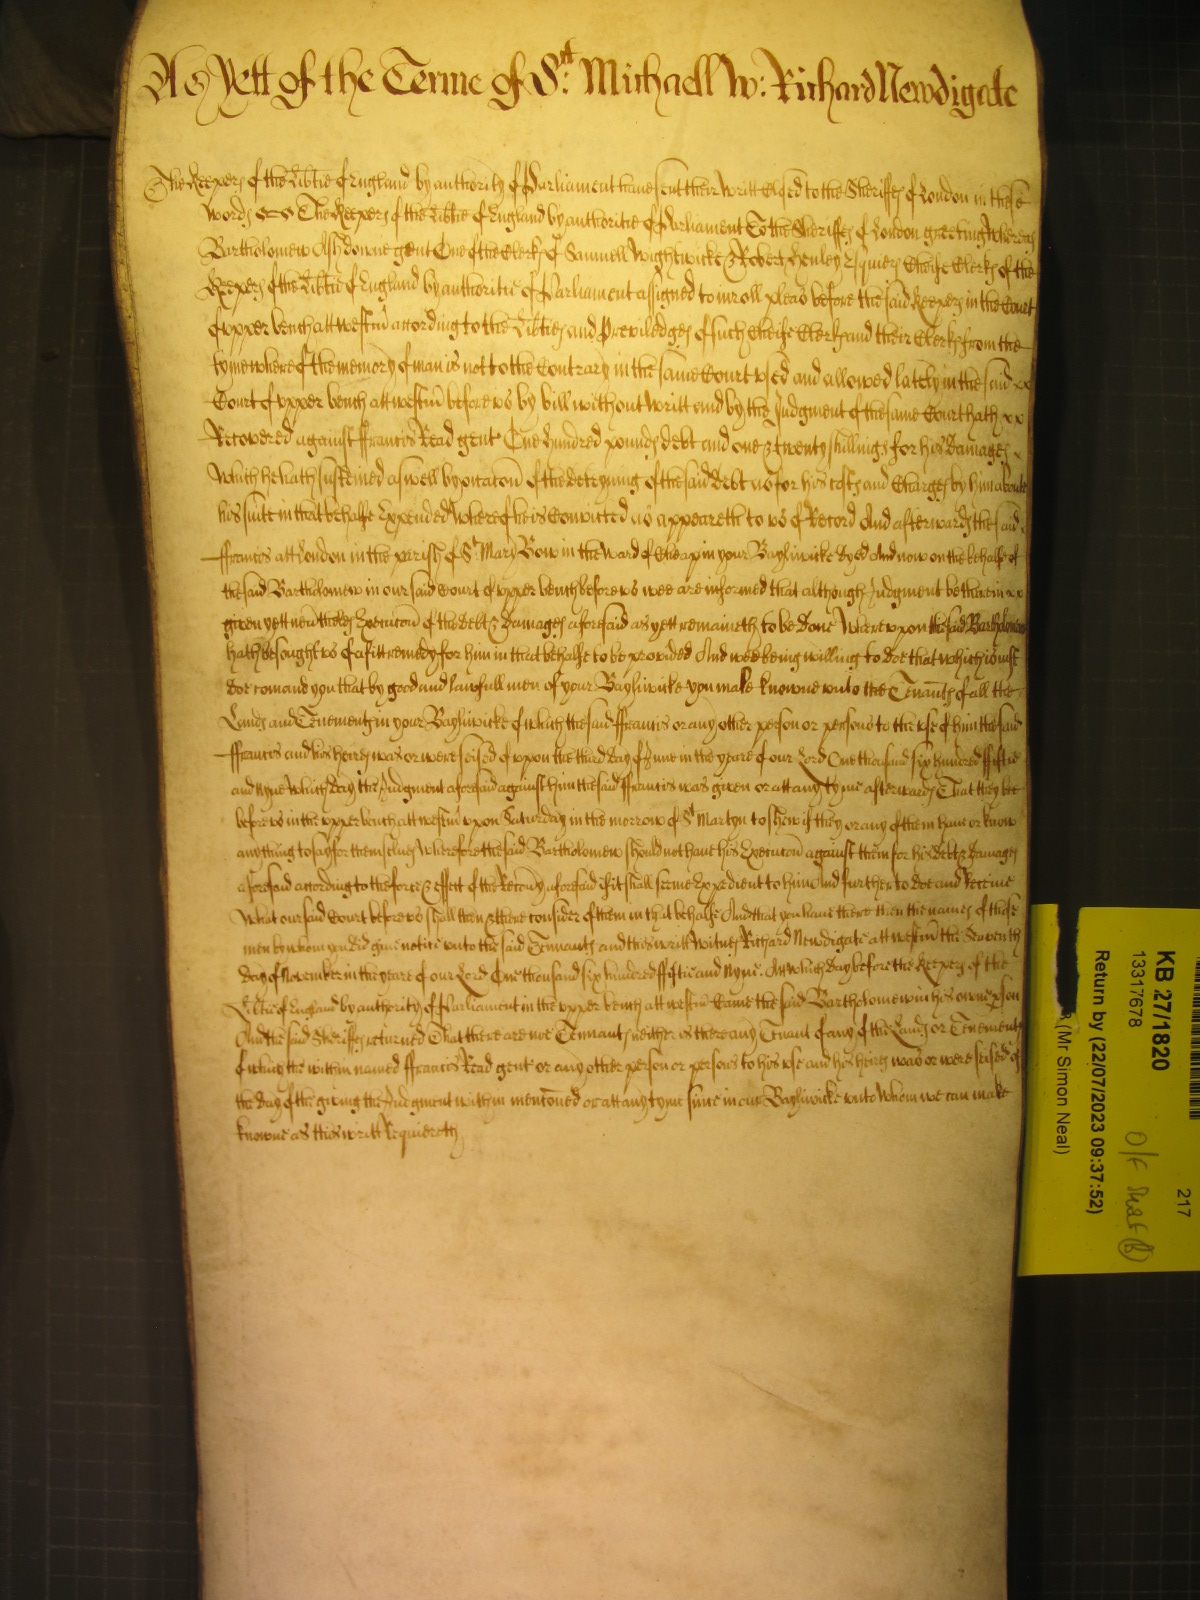 As Yett of the Terme of St. Michaell W: Richard Newdigate
The Keepers of the Libtie of England by authority of Parliament have sent their Writt Closed to the Sheriffes of London in these
words The Keepers of the Libtie of England by authoritie of Parliament To the Sheriffes of London greeting Whereas
Bartholomew Ashdowne gent One of the Clerks of Samuell Wightwicke & Robert Henley Esquiers Cheife Clerks of the
Keepers of the Libtie of England by authoritie of Parliament assigned to inroll pleas before the said Keepers in the Court
of upper bench att westm according to the Libties and Previledges of such Cheife Clerks and their Clerks from the
tyme whereof the memory of man is not to the Contrary in the same Court used and allowed lately in the said
Court of upper bench att westm before us by bill without Writt and by the Judgment of the same Court hath
Recovered against ffrancis Read gent One hundred pounds debt and one & twenty shillings for his damages
Which he hath susteined aswell by occacon of the deteyning of the said debt as for his costs and Charges by him aboute
his suite in that behalfe Expended Whereof he is Convicted as appeareth to us of Record And afterwards the said
ffrancis att London in the parish of St Mary Bow in the Ward of Cheap in your Bayliwicke dyed And now on the behalfe of
the said Bartholomew in our said Court of upper bench before us wee are informed that although Judgment be therein
given yett neverthelesse Execucon of the debt & damages aforesaid as yett remaineth to be done Whereupon the said Bartholomew
hath besought us of a fitt remedy for him in that behalfe to be provided And wee being willing to doe that which is just
doe comand you that by good and lawfull men of your Bayliwicke you make knowne unto the Tenants of all the
Lands and Tenements in your Bayliwicke of which the said ffrancis or any other person or persons to the use of him the said
ffrancis and his heires was or were seised of upon the third day of June in the yeare of our Lord One thousand six hundred ffiftie
and Nyne Which day the Judgment aforesaid against him the said ffrancis was given or att any tyme afterwards That they bee
before us in the upper bench att westm upon Saturday in the morrow of St Martyn to shew if they or any of them have or know
anything to say for themselues Wherefore the said Bartholomew should not have his Execucon against them for his debt & damages
aforesaid according to the force & effect of the Recovery aforesaid if it shall seeme Expedient to him And further to doe and Receive
What our said Court before us shall then & there consider of them in that behalfe And that you have there then the names of those
men by whom you did give notice unto the said Tennants and this writt witnes Richard Newdigate att westm the Seaventh
day of November in the yeare of our Lord One thousand six hundred ffiftie and Nyne. At which day before the Keepers of the
Libtie of England by authority of Parliament in the upper bench att westm Came the said Bartholomew in his owne pson
And the said Sheriffes returned That there are noe Tennants neither is there any Tenant of any of the Lands or Tenements
of which the within named ffrancis Read gent or any other person or persons to his use and his heires was or were seised of
the day of the giving the Judgment within mentoned or att any tyme since in our Bayliwicke unto Whom we can make
knowne as this writt Requireth
KB 27/1820
217
13317678
O/F
Return by (22/07/2023 09:37:52)
(Mr Simon Neal)